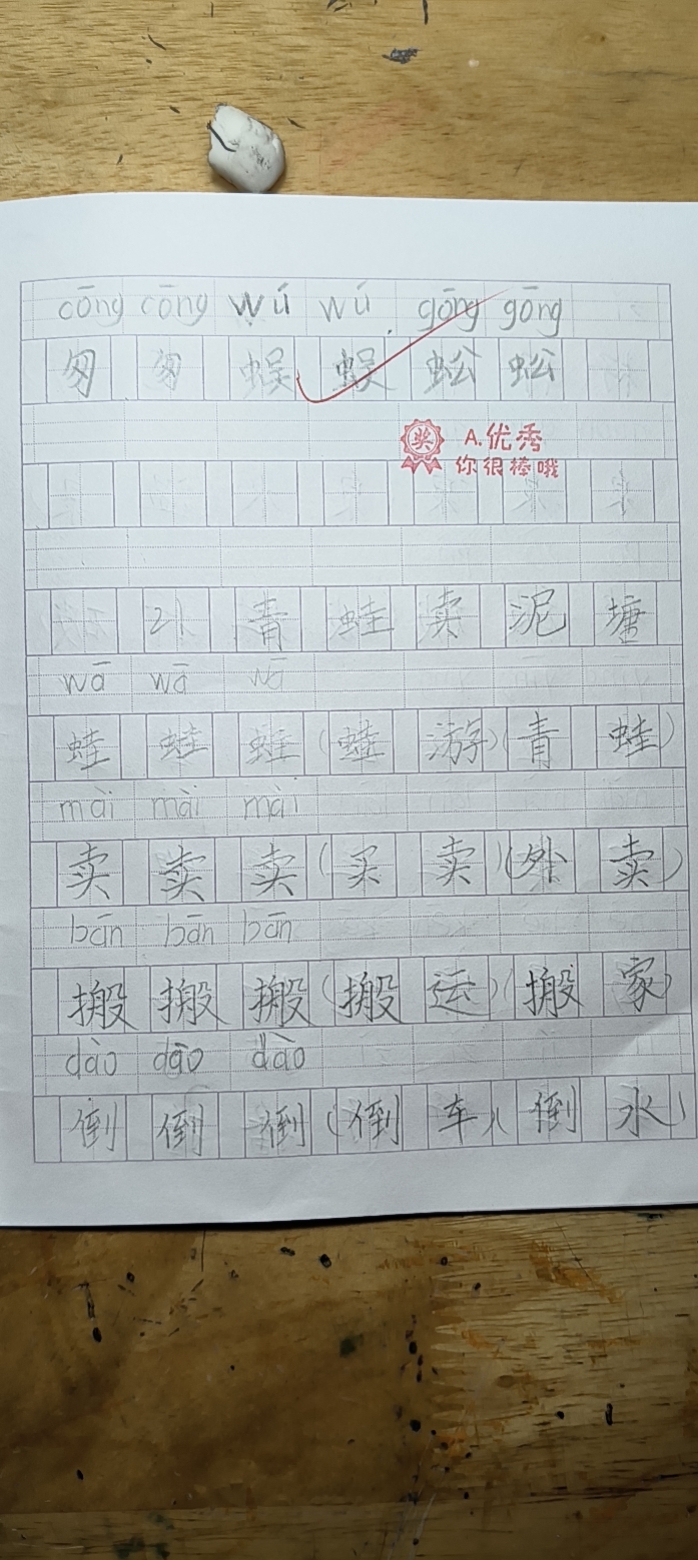 cōng cōng wú wú gōng gōng
匆 匆 蜈 蜈 蚣 蚣
A.优秀
奖
你很棒哦
21 青 蛙 卖 泥 塘
wā wā wā
蛙 蛙 蛙 (蛙 游)(青 蛙)
mài mài mài
卖 卖 卖 (买 卖)(外 卖)
bān bān bān
搬 搬 搬 (搬 运)(搬 家)
dào dào dào
倒 倒 倒 (倒 车)(倒 水)